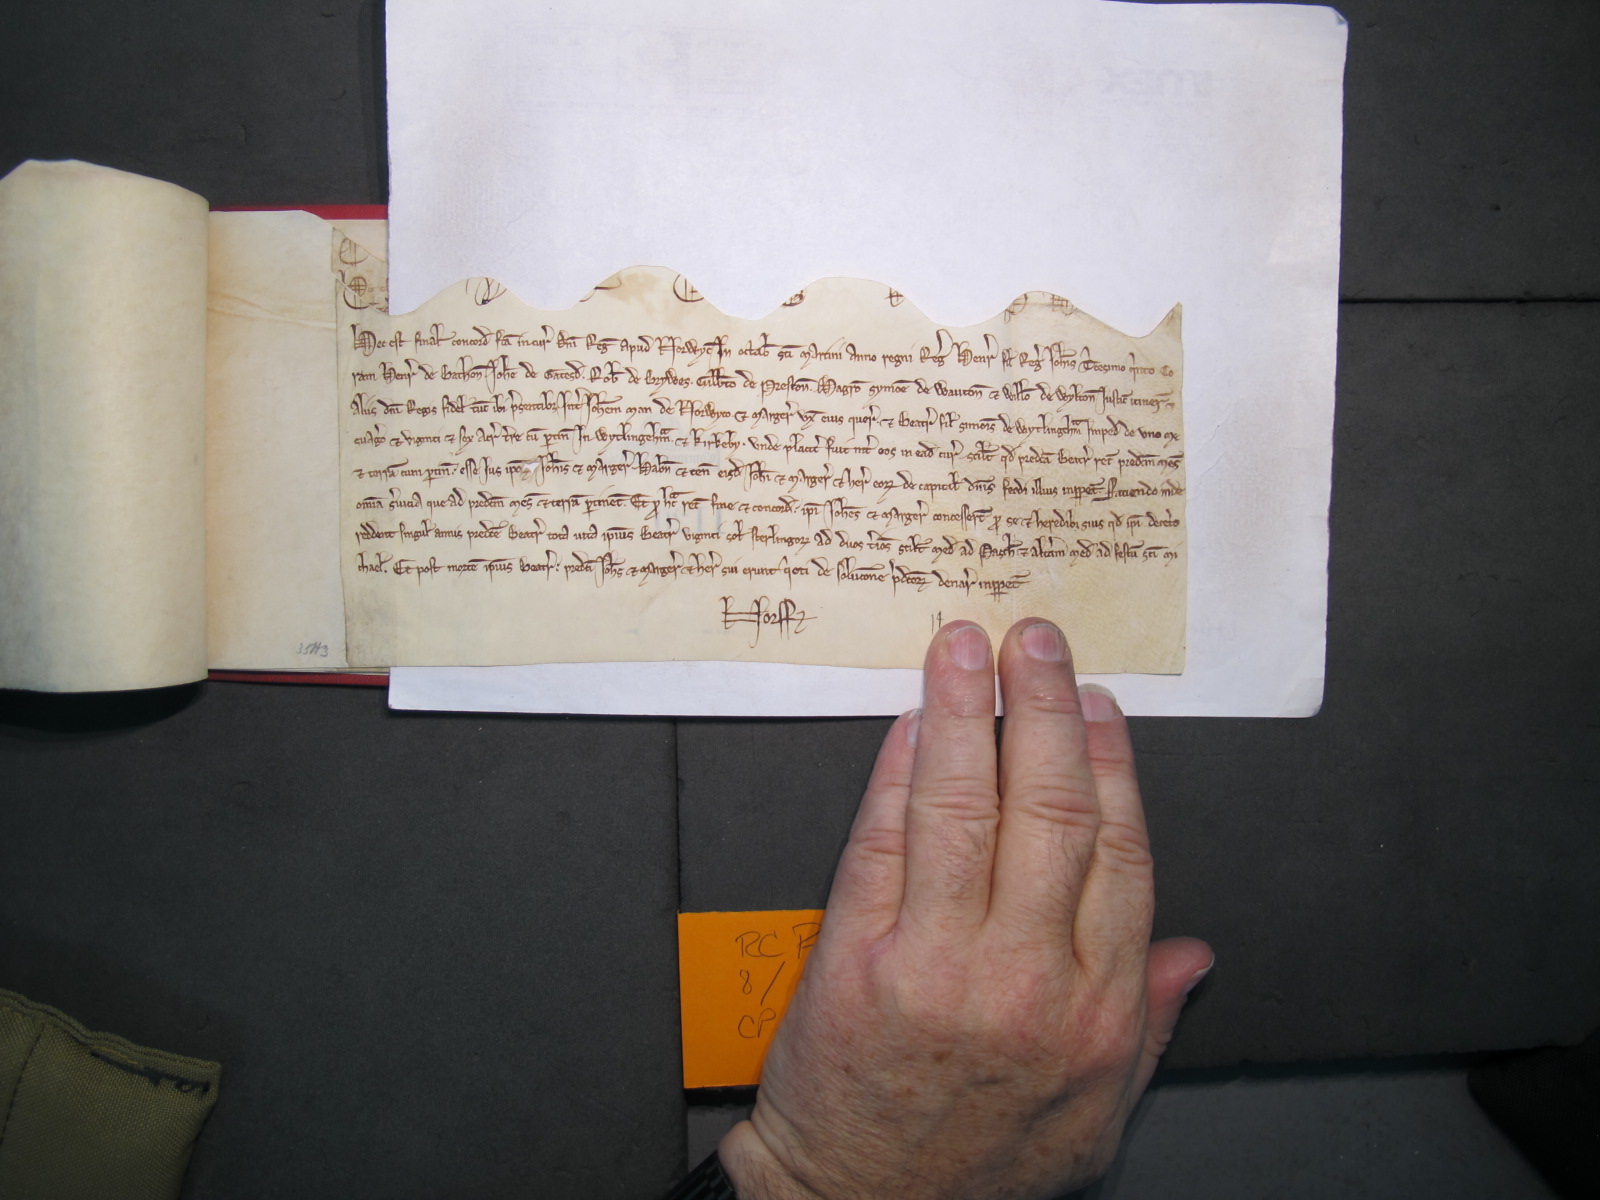 Hec est final' concord' f'ca in cur' d'ni Reg' apud Norwyc' In octab' s'ci Martini Anno regni Reg' Henr' fil' Reg' Joh'is t'cesimo q'nto Co
ram Henr' de Bathon' Joh'e de Gatesd' Rob' de Gilb'to de Preston' Mag'ro Symone de Wauton' & Will'o de Wylton' Justic' itiner' &
aliis d'ni Regis fidel' tu'c ibi p'sentibz Int' Joh'em Man de Norwyco & Marger' vx' eius quer' & Beatr' fil' Simonis de Wytlingh'm Imped' de vno me
suag'o & viginti & sex acr' t're cu' p'tin' In Wytlingeh'm & Kirkeby. vnde placit' fuit int' eos in ead' cur' scil't q'd predc'a Beatr' rec' predc'm mes'
& terra' cum p'tin' esse Jus ipor' Joh'is & Marger' Habn'd & ten' eisd' Joh'i & Marger' & her' eor' de capital' d'nis feodi illius inp'pet' Faciendo inde
om'ia s'uicia que ad predc'm mes' & terra' p'tinent. Et p' hac rec' fine & concord' ipi' Joh'es & Marger' concesser't p' se & heredibz suis q'd ipi' decet'o
reddent singul' annis predc'e Beatr' tota vita ipsius Beatr' viginti sol' sterlingor' ad duos t'ios scil't med' ad Pasch' & alt'am med' ad festu' s'ci Mi
chael'. Et post morte' ipsius Beatr' predc'i Joh's & Marger' & her' sui erunt q'eti de soluc'one p'dc'or' denar' inp'pet'
Norff'
35 H 3
RC
8/
CP